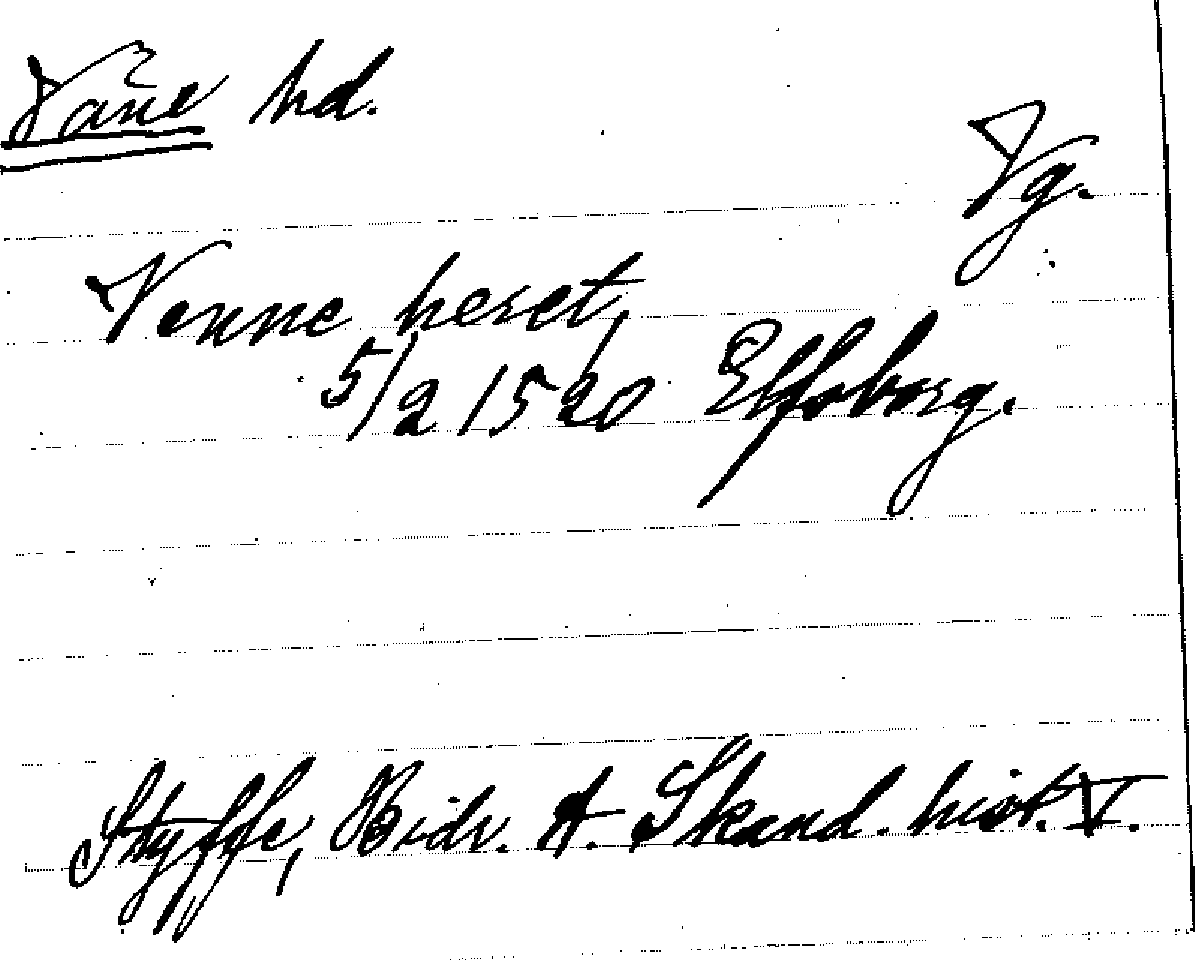 Våne hd.
Vg.
Venne heret,
5/2 1520 Elfsborg.
Styffe, Bidr. t. Skand. hist. V.